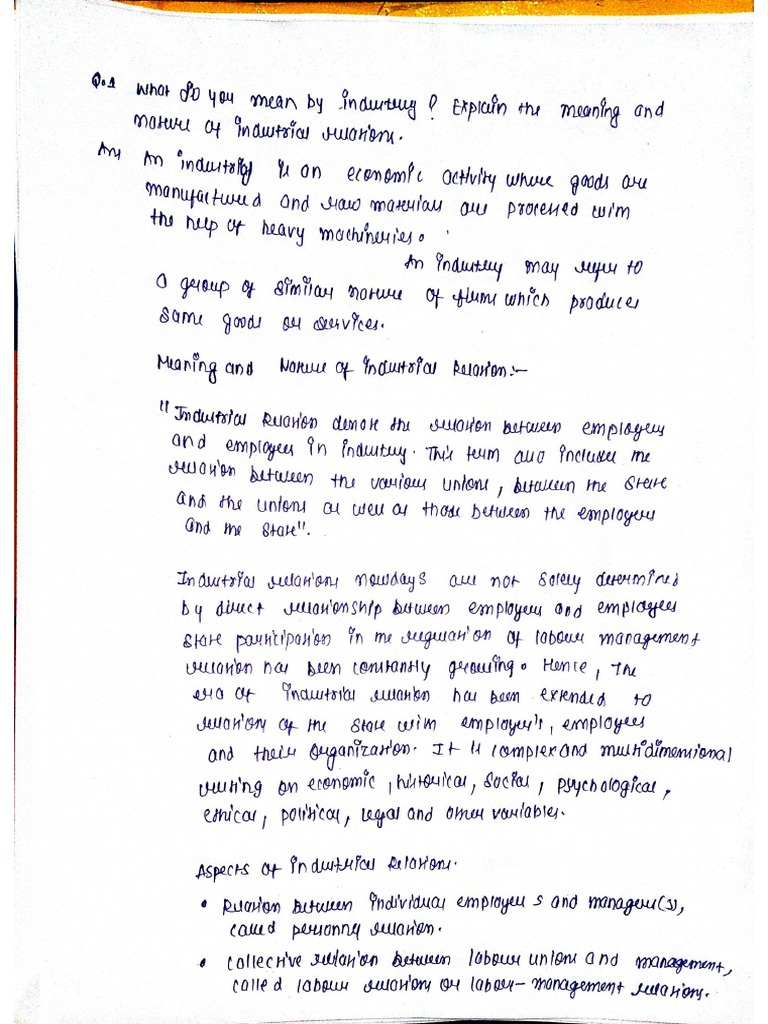 Q.1 What do you mean by industry? Explain the meaning and
nature of industrial relations.
Ans An industry is an economic activity where goods are
manufactured and raw materials are processed with
the help of heavy machineries.
An industry may refer to
a group of similar nature of firms which produces
same goods or services.
Meaning and Nature of industrial Relation:-
"Industrial Relation denote the relation between employers
and employees in industry. This term also include the
relation between the various unions, between the state
and the unions as well as those between the employers
and the state".
Industrial relations nowdays are not solely determined
by direct relationship between employers and employees
state participation in the regulation of labour management
relation has been constantly growing. Hence, The
era of industrial relation has been extended to
relations of the state with employer's, employees
and their organization. It is complex and multidimensional
resting on economic, historical, social, psychological,
ethical, political, legal and other variables.
Aspects of industrial Relations.
• Relation between individual employees and managers(s),
called personnel relation.
• collective relation between labour unions and management,
called labour relations or labour-management relations.